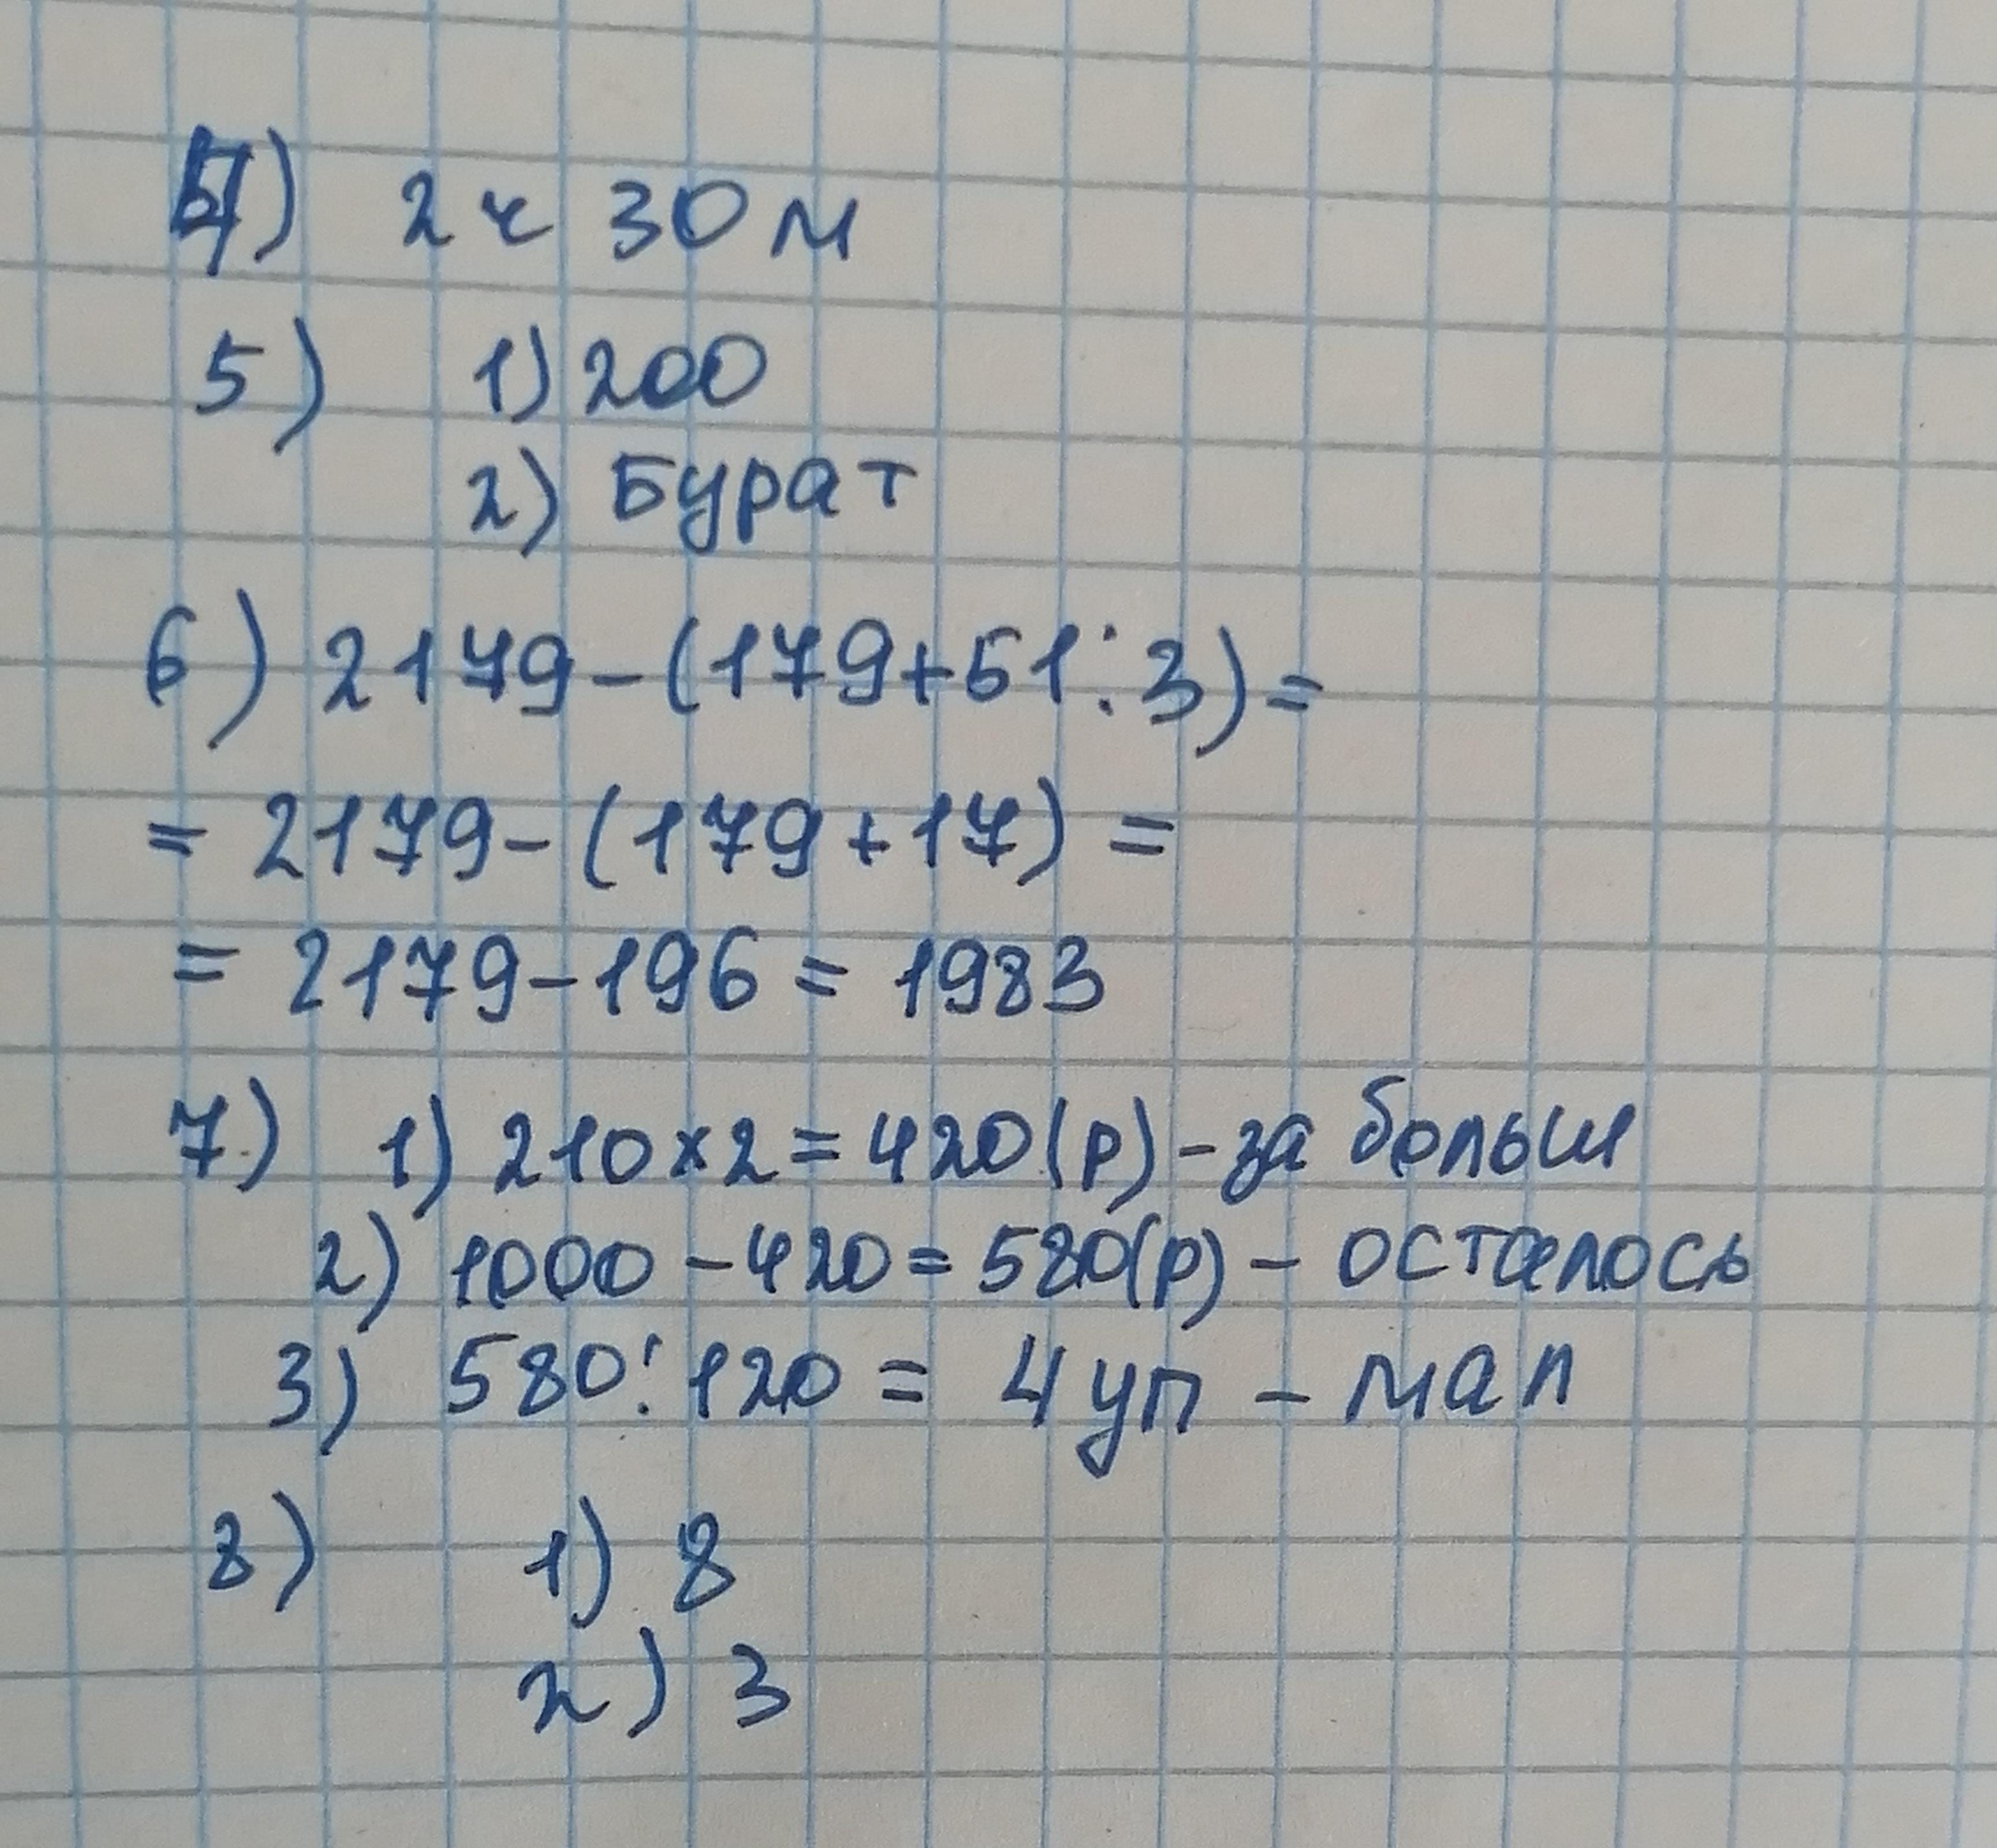 4) 2 ч 30 м
5) 1) 200
2) Бурат
6) 2179-(179+51:3)=
=2179-(179+17)=
=2179-196=1983
7) 1) 210×2=420(р)-за больш
2) 1000-420=580(р)-осталось
3) 580:120=4уп-мал
8) 1) 8
2) 3